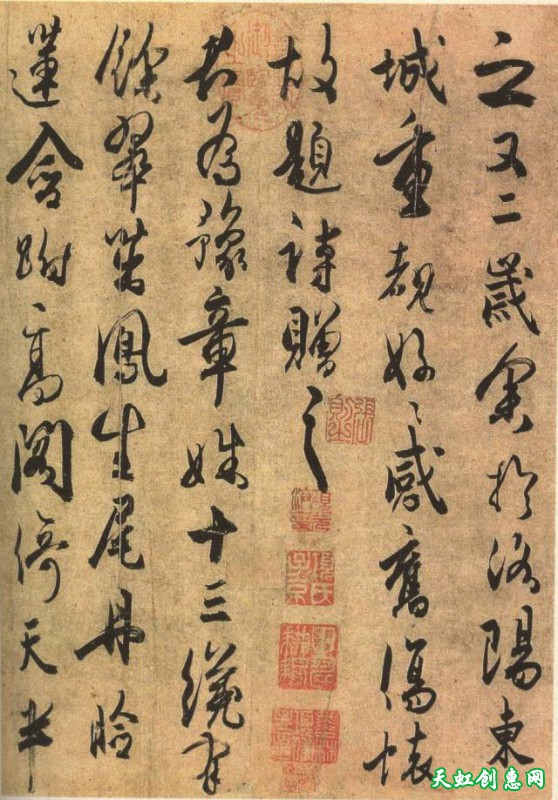 之又二歲余於洛陽東
城重覩好〻感舊傷懷
故題詩贈之
君為豫章姝十三纔有
餘翠茁鳳生尾丹臉
蓮含跗高閣倚天半
天虹创惠网